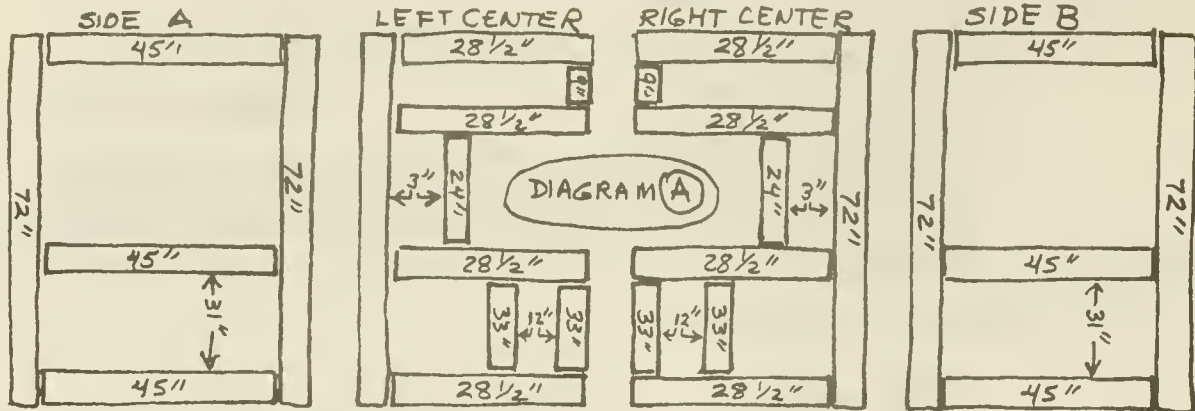 SIDE A
45"
72"
72"
45"
31"
45"
LEFT CENTER
28 1/2"
9"
28 1/2"
3"
24"
28 1/2"
33"
12"
33"
28 1/2"
DIAGRAM A
RIGHT CENTER
28 1/2"
9"
28 1/2"
24"
3"
72"
28 1/2"
33"
12"
33"
28 1/2"
SIDE B
45"
72"
72"
45"
31"
45"